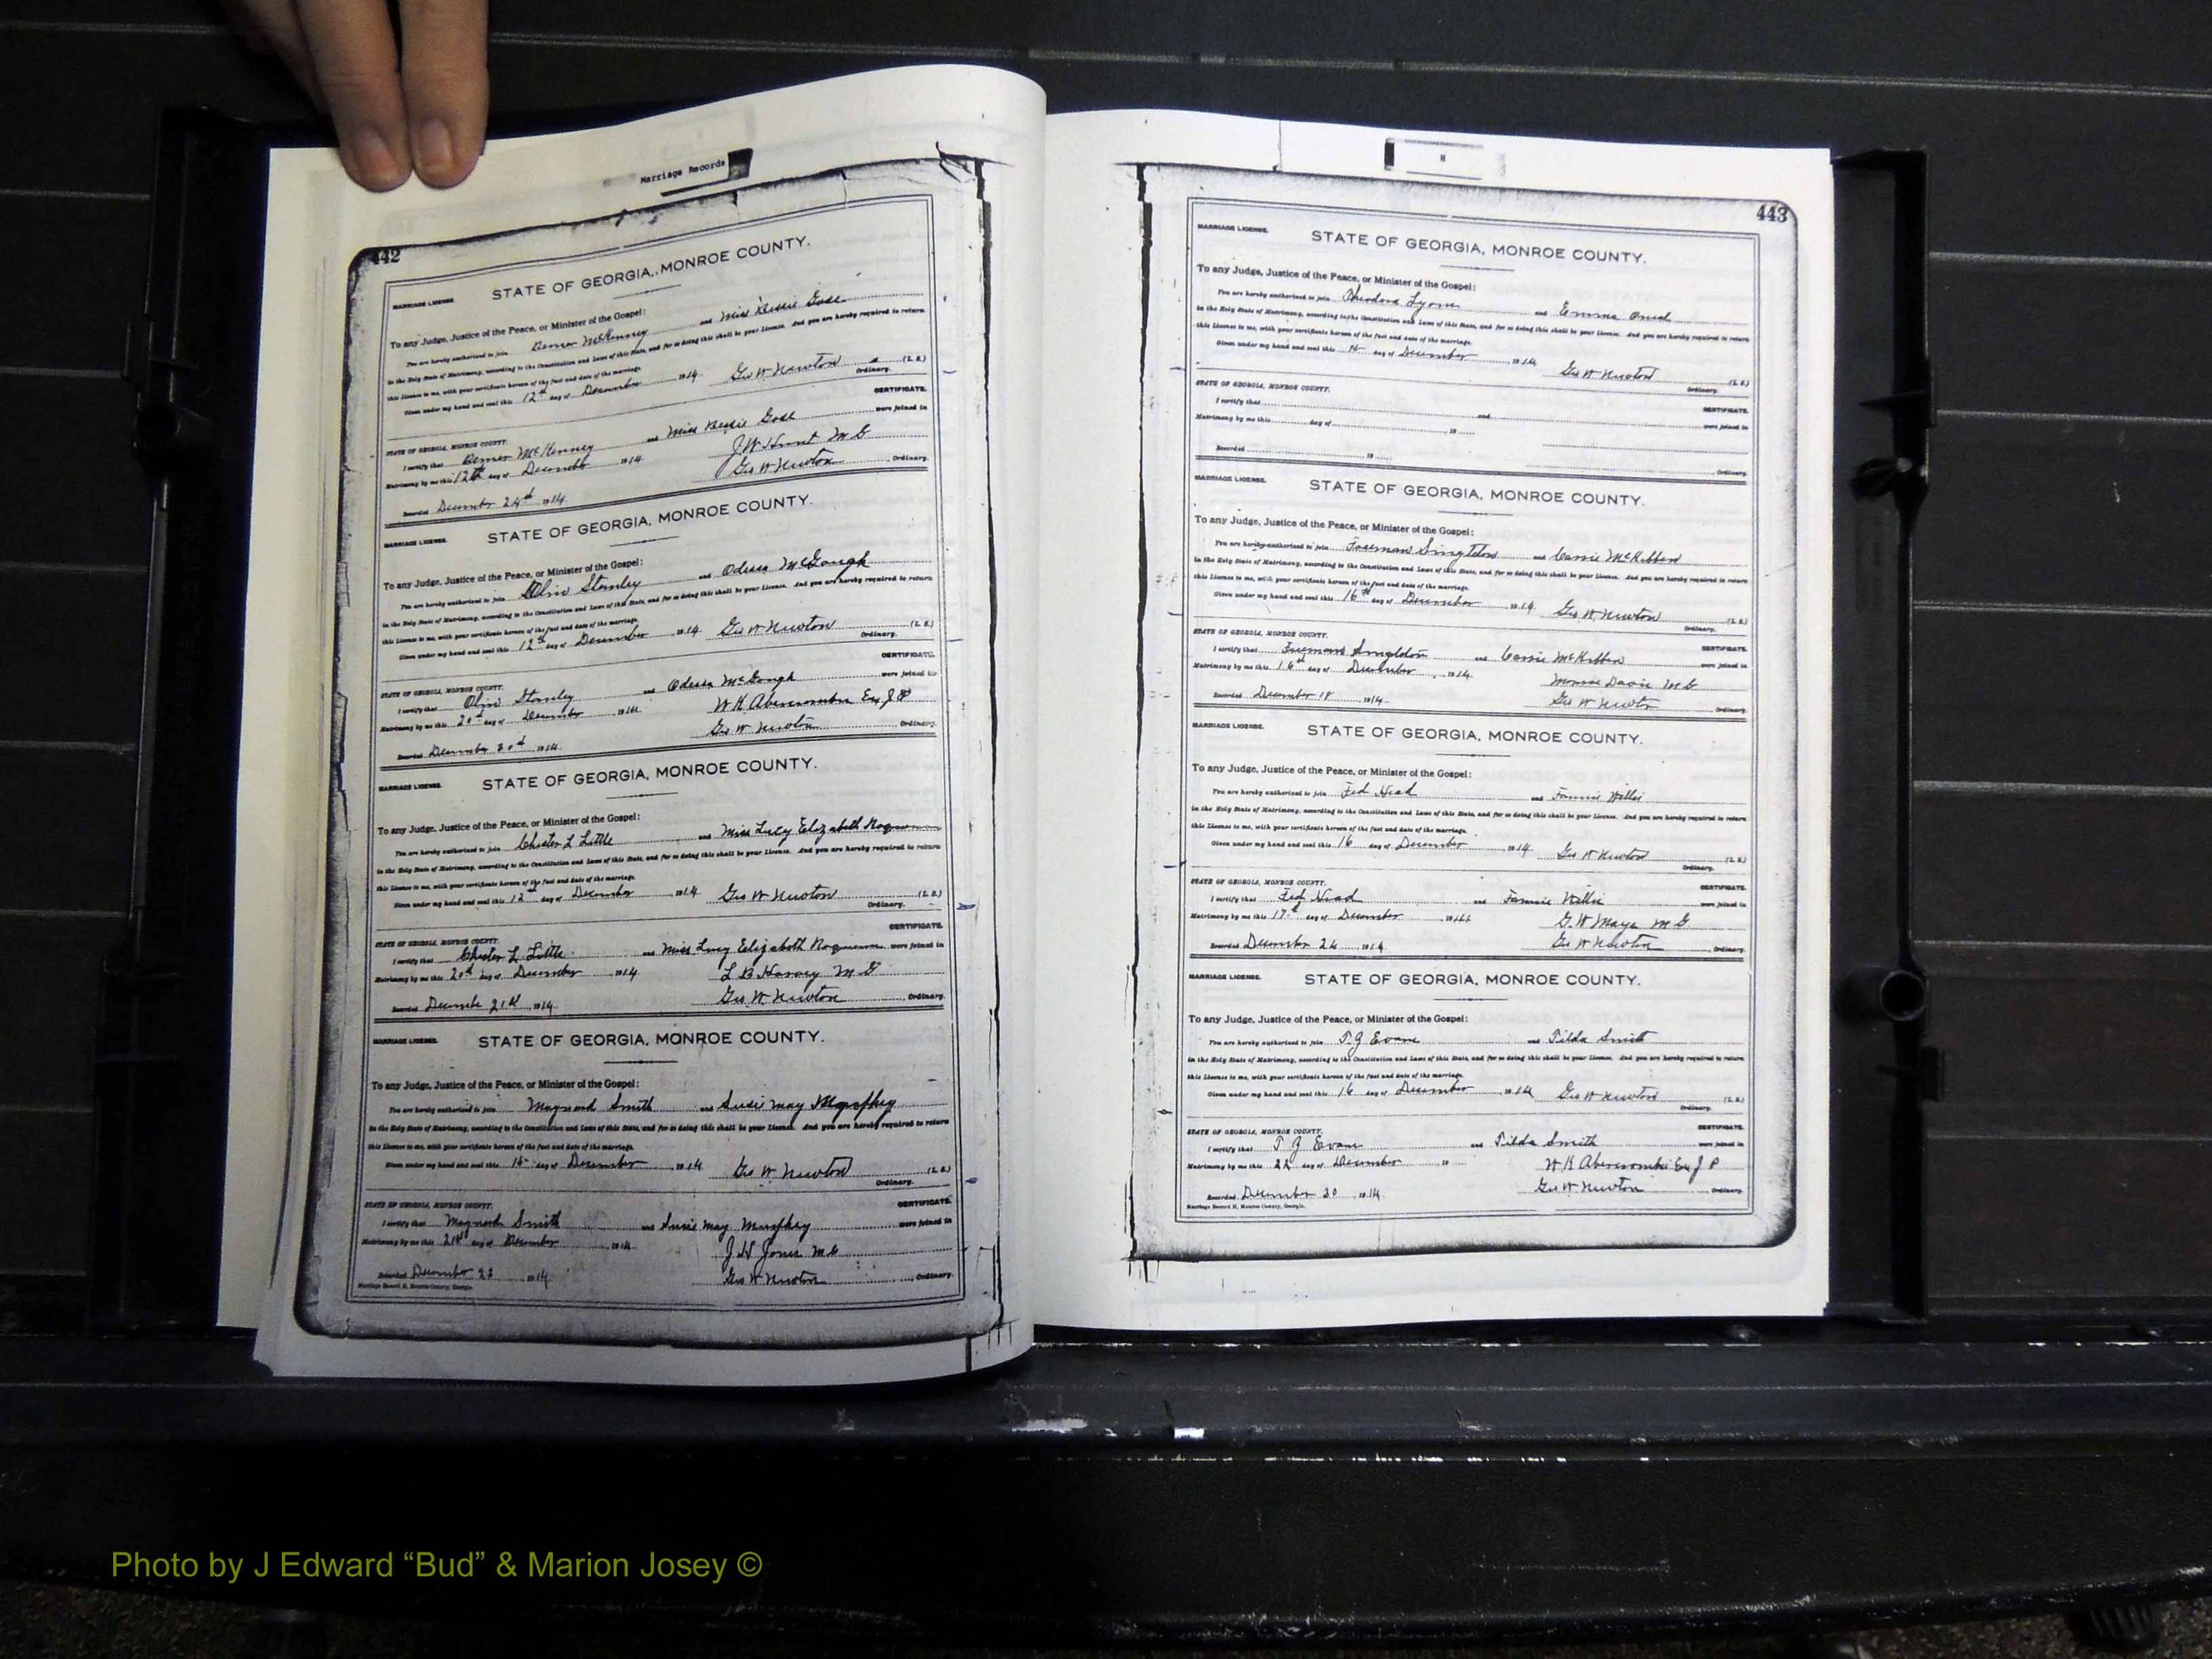 Marriage Records
442
MARRIAGE LICENSE. STATE OF GEORGIA, MONROE COUNTY.
To any Judge, Justice of the Peace, or Minister of the Gospel:
You are hereby authorized to join McKinney and Miss Bessie
in the Holy State of Matrimony, according to the Constitution and Laws of this State, and for so doing this shall be your License. And you are hereby required to return
this License to me, with your certificate hereon of the fact and date of the marriage.
Given under my hand and seal this 12th day of December 1914. Geo W Newton (L. S.)
Ordinary.
STATE OF GEORGIA, MONROE COUNTY. CERTIFICATE.
I certify that McKinney and Miss Bessie were joined in
Matrimony by me this 12th day of December 1914. J W Hunt M G
Recorded December 24th 1914. Geo W Newton, Ordinary.
MARRIAGE LICENSE. STATE OF GEORGIA, MONROE COUNTY.
To any Judge, Justice of the Peace, or Minister of the Gospel:
You are hereby authorized to join Olin Stanley and Odessa McGough
in the Holy State of Matrimony, according to the Constitution and Laws of this State, and for so doing this shall be your License. And you are hereby required to return
this License to me, with your certificate hereon of the fact and date of the marriage.
Given under my hand and seal this 12th day of December 1914 Geo W Newton (L. S.)
Ordinary.
STATE OF GEORGIA, MONROE COUNTY. CERTIFICATE.
I certify that Olin Stanley and Odessa McGough were joined in
Matrimony by me this 20th day of December 1914. W H Abercrombie Esq J P
Recorded December 30th 1914. Geo W Newton Ordinary.
MARRIAGE LICENSE. STATE OF GEORGIA, MONROE COUNTY.
To any Judge, Justice of the Peace, or Minister of the Gospel:
You are hereby authorized to join Chester L Little and Miss Lucy Elizabeth
in the Holy State of Matrimony, according to the Constitution and Laws of this State, and for so doing this shall be your License. And you are hereby required to return
this License to me, with your certificate hereon of the fact and date of the marriage.
Given under my hand and seal this 12th day of December 1914 Geo W Newton (L. S.)
Ordinary.
STATE OF GEORGIA, MONROE COUNTY. CERTIFICATE.
I certify that Chester L Little and Miss Lucy Elizabeth were joined in
Matrimony by me this 20th day of December 1914 L B Harvey M G
Recorded December 21st 1914. Geo W Newton, Ordinary.
MARRIAGE LICENSE. STATE OF GEORGIA, MONROE COUNTY.
To any Judge, Justice of the Peace, or Minister of the Gospel:
You are hereby authorized to join Maynard Smith and Susie May Murphey
in the Holy State of Matrimony, according to the Constitution and Laws of this State, and for so doing this shall be your License. And you are hereby required to return
this License to me, with your certificate hereon of the fact and date of the marriage.
Given under my hand and seal this 15 day of December 1914 Geo W Newton (L. S.)
Ordinary.
STATE OF GEORGIA, MONROE COUNTY. CERTIFICATE.
I certify that Maynard Smith and Susie May Murphey were joined in
Matrimony by me this 21st day of December 1914. J H Jones M G
Recorded December 23 1914 Geo W Newton, Ordinary.
Marriage Record H, Monroe County, Georgia.
H
443
MARRIAGE LICENSE. STATE OF GEORGIA, MONROE COUNTY.
To any Judge, Justice of the Peace, or Minister of the Gospel:
You are hereby authorized to join Theodore Lyons and Emma
in the Holy State of Matrimony, according to the Constitution and Laws of this State, and for so doing this shall be your License. And you are hereby required to return
this License to me, with your certificate hereon of the fact and date of the marriage.
Given under my hand and seal this 15 day of December, 1914 Geo W Newton (L. S.)
Ordinary.
STATE OF GEORGIA, MONROE COUNTY. CERTIFICATE.
I certify that and were joined in
Matrimony by me this day of , 19
Recorded , 19 Ordinary.
MARRIAGE LICENSE. STATE OF GEORGIA, MONROE COUNTY.
To any Judge, Justice of the Peace, or Minister of the Gospel:
You are hereby authorized to join Freeman Singleton and Cassie McKibben
in the Holy State of Matrimony, according to the Constitution and Laws of this State, and for so doing this shall be your License. And you are hereby required to return
this License to me, with your certificate hereon of the fact and date of the marriage.
Given under my hand and seal this 16th day of December, 1914. Geo W Newton (L. S.)
Ordinary.
STATE OF GEORGIA, MONROE COUNTY. CERTIFICATE.
I certify that Freeman Singleton and Cassie McKibben were joined in
Matrimony by me this 16th day of December, 1914. Monroe Davis M G
Recorded December 18, 1914. Geo W Newton Ordinary.
MARRIAGE LICENSE. STATE OF GEORGIA, MONROE COUNTY.
To any Judge, Justice of the Peace, or Minister of the Gospel:
You are hereby authorized to join Fed Head and Fannie Willis
in the Holy State of Matrimony, according to the Constitution and Laws of this State, and for so doing this shall be your License. And you are hereby required to return
this License to me, with your certificate hereon of the fact and date of the marriage.
Given under my hand and seal this 16 day of December, 1914. Geo W Newton (L. S.)
Ordinary.
STATE OF GEORGIA, MONROE COUNTY. CERTIFICATE.
I certify that Fed Head and Fannie Willis were joined in
Matrimony by me this 17th day of December, 1914 G. W Mays M G
Recorded December 26, 1914 Geo W Newton, Ordinary.
MARRIAGE LICENSE. STATE OF GEORGIA, MONROE COUNTY.
To any Judge, Justice of the Peace, or Minister of the Gospel:
You are hereby authorized to join T. J Evans and Tilda Smith
in the Holy State of Matrimony, according to the Constitution and Laws of this State, and for so doing this shall be your License. And you are hereby required to return
this License to me, with your certificate hereon of the fact and date of the marriage.
Given under my hand and seal this 16 day of December, 1914 Geo W Newton (L. S.)
Ordinary.
STATE OF GEORGIA, MONROE COUNTY. CERTIFICATE.
I certify that T J Evans and Tilda Smith were joined in
Matrimony by me this 22 day of December 19 W H Abercrombie Esq J P
Recorded December 30, 1914 Geo W Newton, Ordinary.
Marriage Record H, Monroe County, Georgia.
Photo by J Edward “Bud” & Marion Josey ©